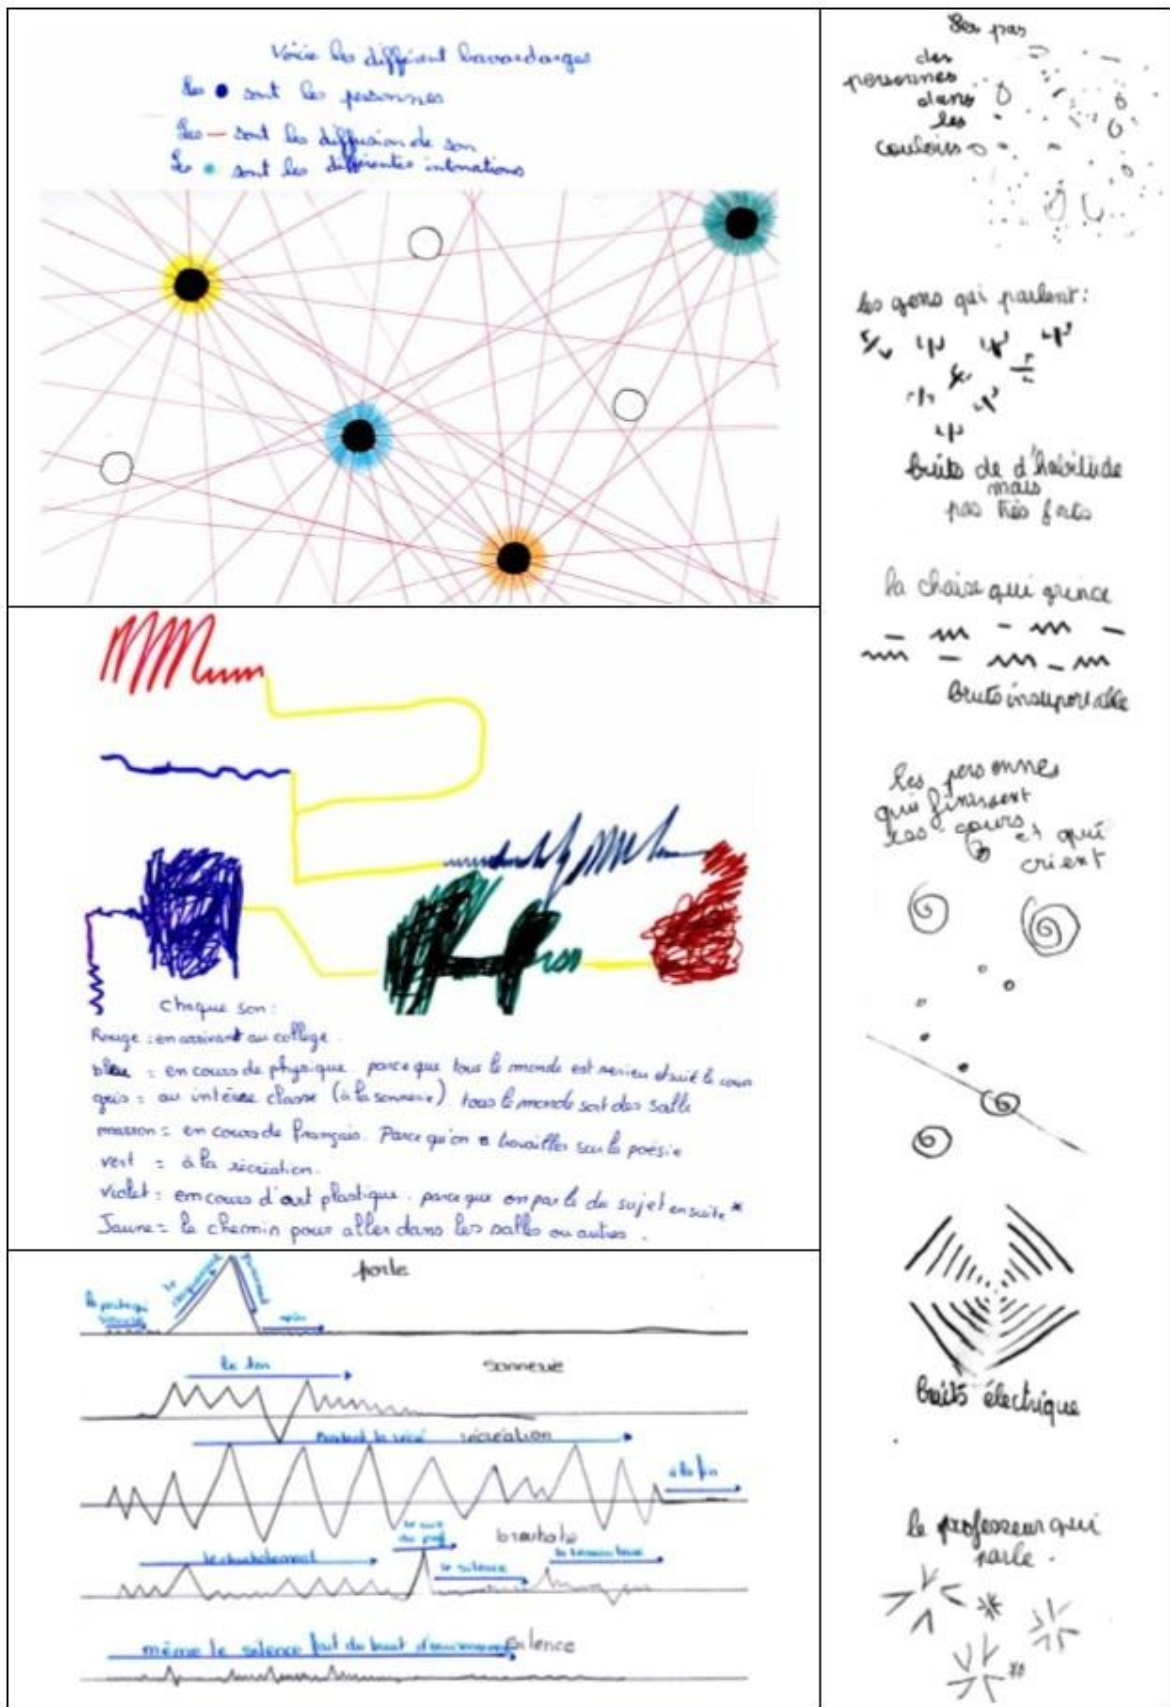 Voicie les différent bavardarges
Les ● sont les personnes
Les — sont les diffusion de son
Les ● sont les différentes intonations
chaque son :
Rouge : en arrivant au collège.
bleu = en cours de physique. parce que tous le monde est serieu et suit le cours
gris = au intère classe (à la sonnerie). tous le monde sort des salle
marron = en cours de français. Parce qu'on travailler sur la poésie
vert = à la récréation.
Violet = em cours d'art plastique. parce que on parle du sujet ensuite *
Jaune = le chemin pour aller dans les salles ou autres.
porte
la porte qui
le claquement
après
le ton
sonnerie
pendant la récré
récréation
à la fin
brouhaha
le chuchotement
le cri
du prof
le silence
même le silence fait du bruit
Silence
Les pas
des
personnes
dans
les
couloirs
les gens qui parlent :
bruits de d'habitude
mais
pas très forts
la chaise qui grince
bruits insuportable
les personnes
qui finissent
les cours
et qui
crient
bruits électrique
le professeur qui
parle.